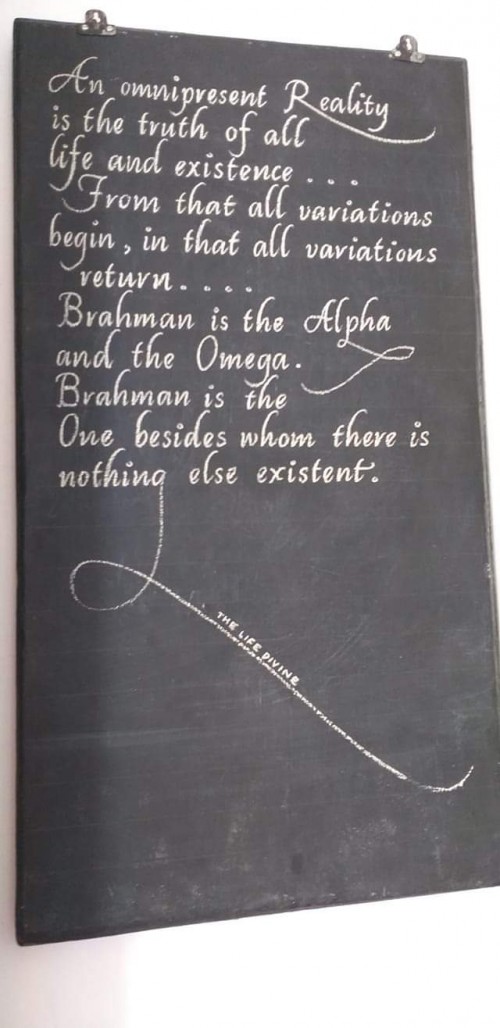 An omnipresent Reality
is the truth of all
life and existence . . .
From that all variations
begin, in that all variations
return. . . .
Brahman is the Alpha
and the Omega.
Brahman is the
One besides whom there is
nothing else existent.
THE LIFE DIVINE